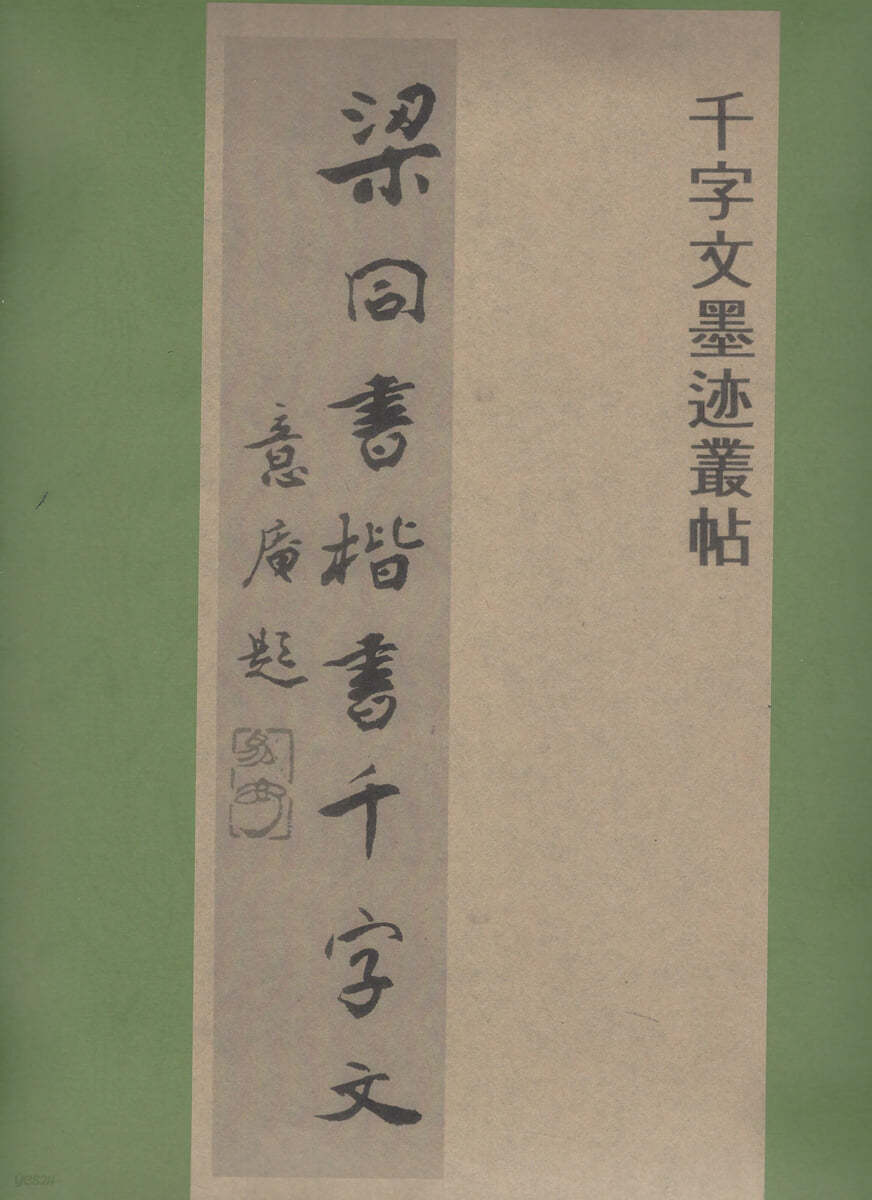 千字文墨迹叢帖
梁同書楷書千字文
意庵題
yes24